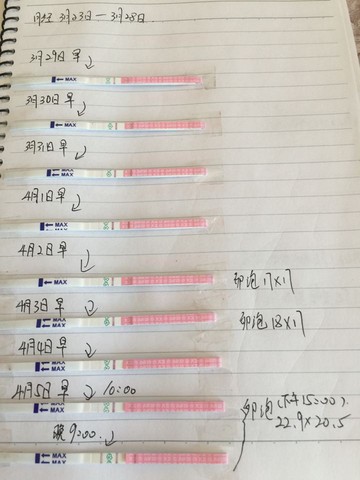 月经 3月23日—3月28日
3月29日 早
MAX
3月30日 早
MAX
3月31日 早
MAX
4月1日 早
MAX
4月2日 早
MAX
卵泡 17×17
4月3日 早
MAX
卵泡 18×17
4月4日 早
MAX
4月5日 早 10:00
MAX
卵泡 (下午15:00)
22.9×20.5
晚 9:00
MAX